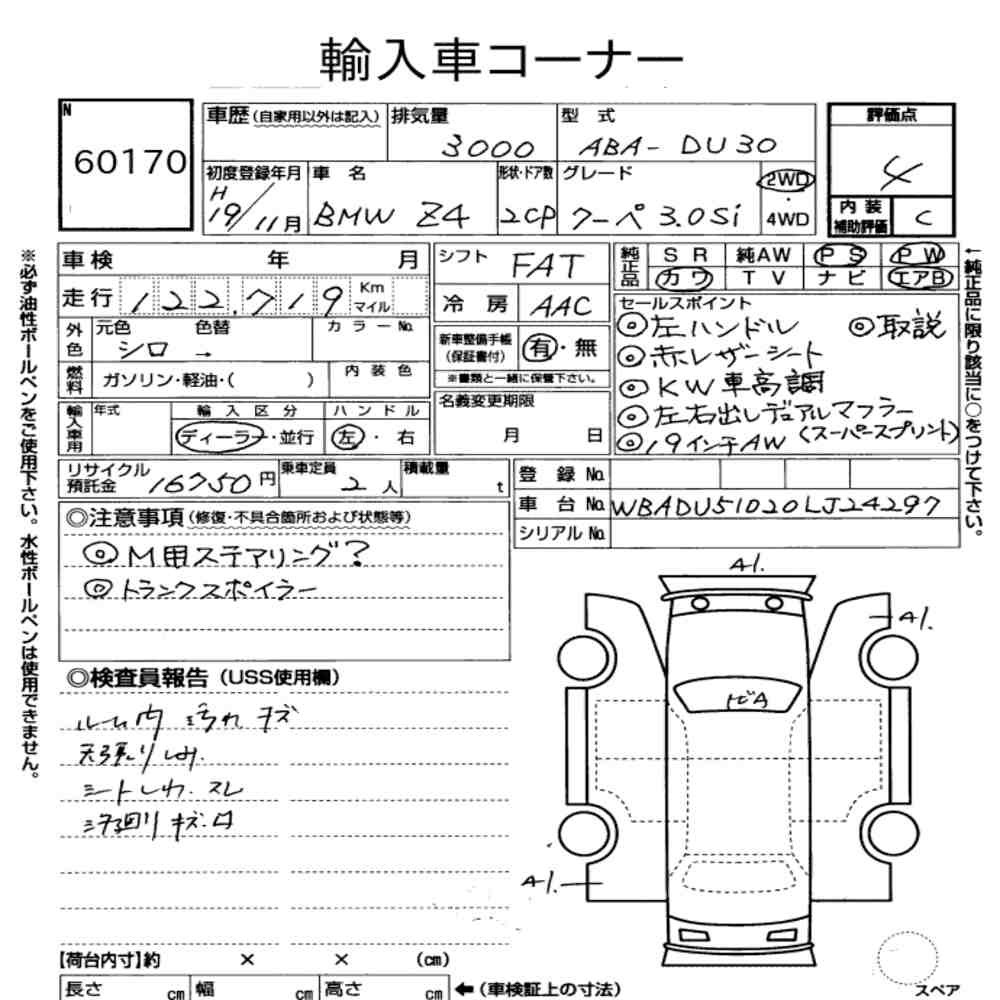 輸入車コーナー
N 60170
車歴 (自家用以外は記入) 排気量 3000 型 式 ABA- DU30 評価点 4
初度登録年月 H19/11月 車 名 BMW Z4 形状・ドア数 2CP グレード クーペ 3.0Si 2WD・4WD
内装補助評価 C
車検 年 月
走行 122,719 Km マイル
外色 元色 シロ → 色替 カラーNo.
燃料 ガソリン・軽油・( ) 内装色
輸入車用 年式 輸入区分 ディーラー・並行 ハンドル 左・右
シフト FAT
冷房 AAC
新車整備手帳 (保証書付) 有・無
※書類と一緒に保管下さい。
名義変更期限
月 日
純正品 SR 純AW PS PW
カワ TV ナビ エアB
セールスポイント
◎左ハンドル ◎取説
◎赤レザーシート
◎KW車高調
◎左右出しデュアルマフラー
◎19インチAW (スーパースプリント)
リサイクル預託金 16750円 乗車定員 2人 積載量 t
登録No.
車台No. WBADU51020LJ24297
シリアルNo.
◎注意事項 (修復・不具合箇所および状態等)
◎M用ステアリング?
◎トランクスポイラー
◎検査員報告 (USS使用欄)
ルーム内 汚れ キズ
天張りしみ.
シートしわ.スレ
下廻りキズ.サ
A1.
A1.
トビA
A1.
【荷台内寸】約 × × (cm)
長さ cm 幅 cm 高さ cm ←(車検証上の寸法)
スペア
※必ず油性ボールペンをご使用下さい。水性ボールペンは使用できません。
←純正品に限り該当に○をつけて下さい。